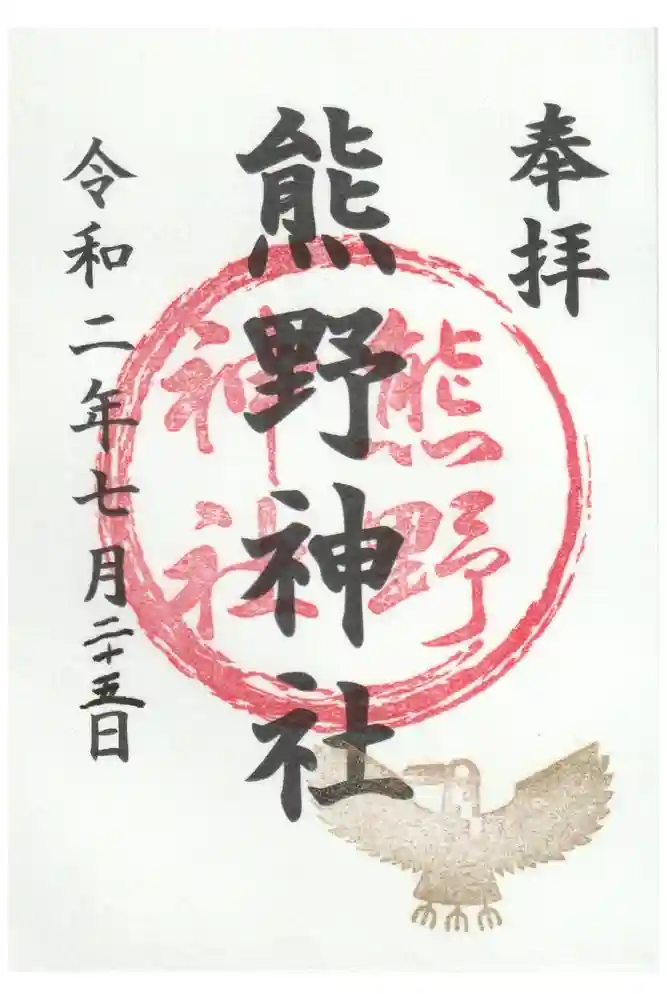 奉拝
熊野神社
熊野
神社
令和二年七月二十五日